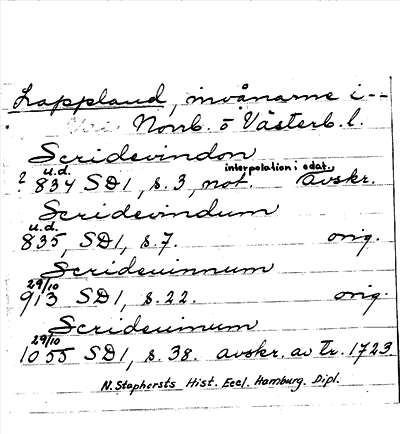 Lappland, invånarne i --
Norrb. o Västerb. l.
Scridevindon
u.d. interpolation i odat.
? 834 SD1, s. 3, not. avskr.
Scridevindum
u.d.
835, SD1, s. 7. orig.
Scrideuinnum
29/10
913 SD1, s. 22. orig.
Scrideuinum
29/10
1055 SD1, s. 38. avskr. av tr. 1723.
N. Staphorsts Hist. Eccl. Hamburg. Dipl.